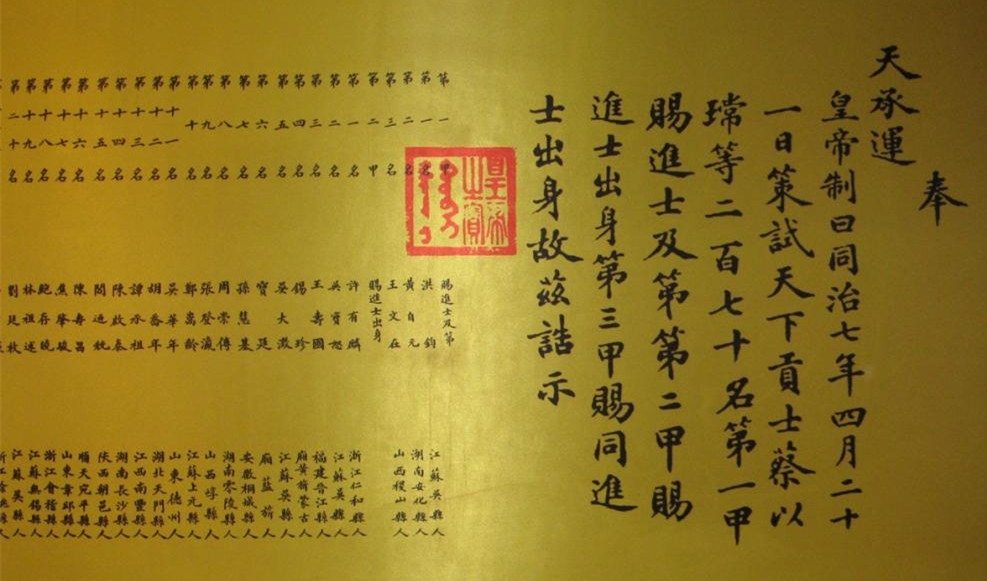 奉
天承運
皇帝制曰同治七年四月二十
一日策試天下貢士蔡以
瑺等二百七十名第一甲
賜進士及第第二甲賜
進士出身第三甲賜同進
士出身故茲誥示
皇帝之寶
第一甲 賜進士及第
第一名 洪鈞 江蘇吳縣人
第二名 黃自元 湖南安化縣人
第三名 王文在 山西稷山縣人
第二甲 賜進士出身
第一名 許有麟 浙江仁和縣人
第二名 吳寶恕 江蘇吳縣人
第三名 王壽國 福建晉江縣人
第四名 錫珍 廂黃旂蒙古
第五名 吳大澂 江蘇吳縣人
第六名 寶廷 廂藍旂
第七名 孫慧基 安徽桐城縣人
第八名 周崇傅 湖南零陵縣人
第九名 張登瀛 山西崞縣人
第十名 鄭嵩齡 江蘇上元縣人
第十一名 吳華年 山東德州人
第十二名 胡喬年 湖北天門縣人
第十三名 譚承祖 江西南豐縣人
第十四名 陳啟泰 湖南長沙縣人
第十五名 閻迺兟 陝西朝邑縣人
第十六名 陳壽昌 順天宛平縣人
第十七名 焦肇駿 山東章邱縣人
第十八名 鮑存曉 浙江會稽縣人
第十九名 林祖述 江蘇無錫縣人
第二十名 劉廷枚 江蘇吳縣人